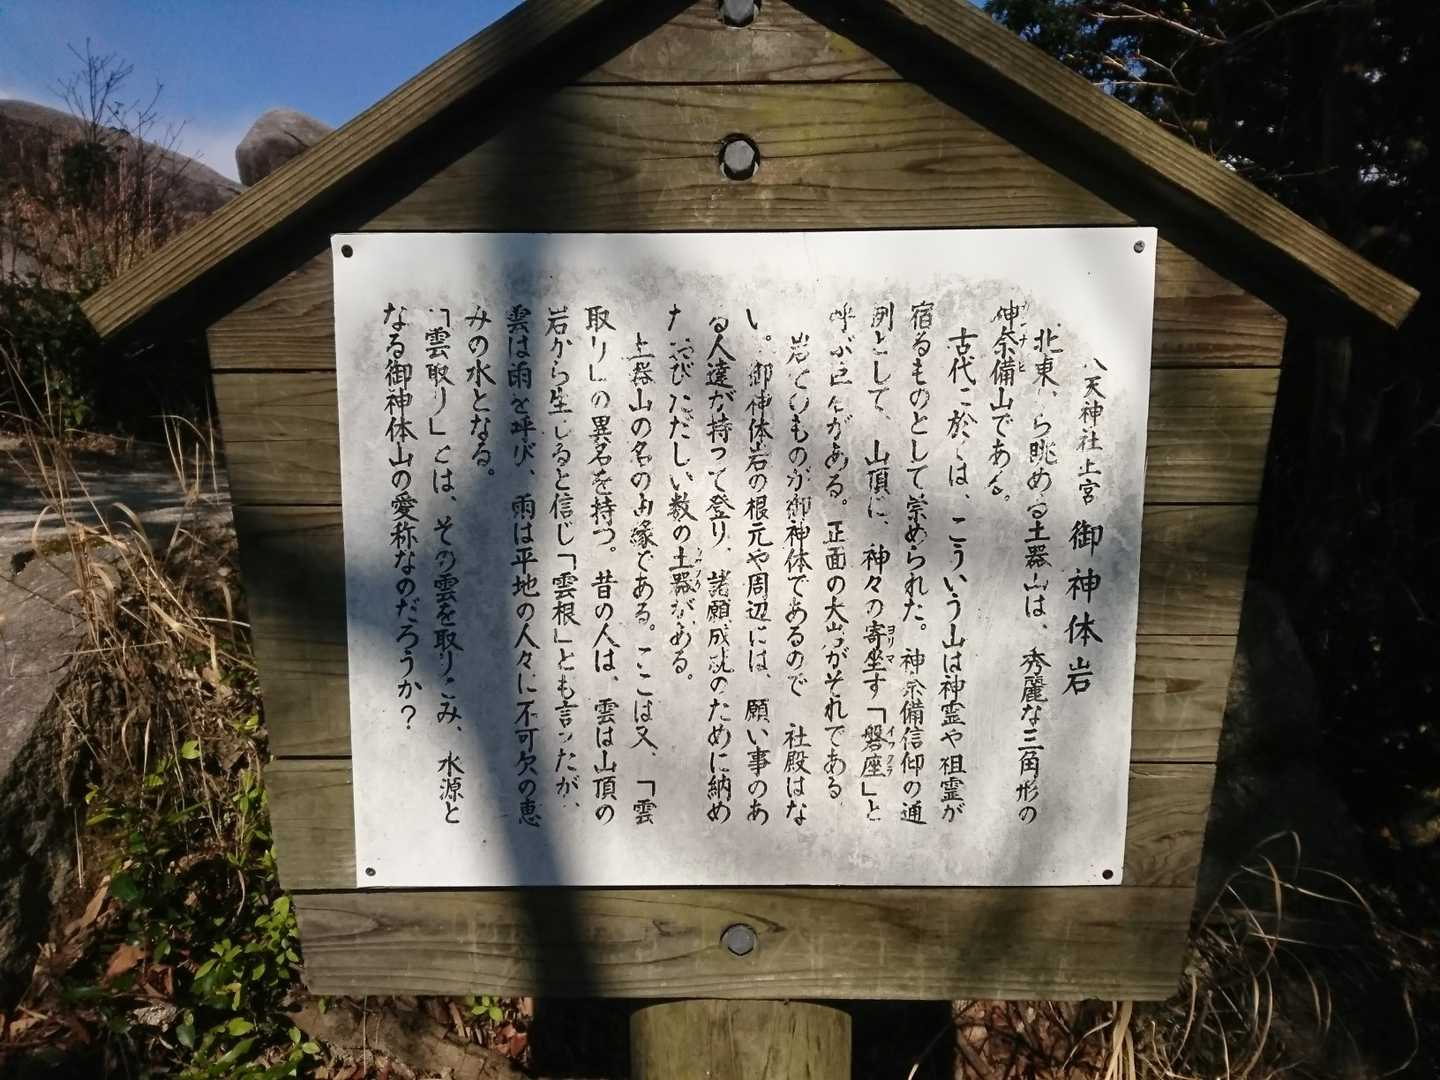 八天神社上宮 御神体岩
北東から眺める土器山は、秀麗な三角形の
神奈備山である。
古代に於ては、こういう山は神霊や祖霊が
宿るものとして崇められた。神奈備信仰の通
例として、山頂に、神々の寄坐す「磐座」と
ヨリマ
イワクラ
呼ぶ巨石がある。正面の大岩がそれである。
岩そのものが御神体であるので 社殿はな
い。御神体岩の根元や周辺には、願い事のあ
る人達が持って登り、諸願成就のために納め
たおびただしい数の土器がある。
土器山の名の由縁である。ここは又、「雲
取り」の異名を持つ。昔の人は、雲は山頂の
岩から生じると信じ「雲根」とも言ったが、
雲は雨を呼び、雨は平地の人々に不可欠の恵
みの水となる。
「雲取り」とは、その雲を取りこみ、水源と
なる御神体山の愛称なのだろうか?